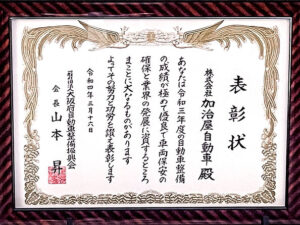 表彰状
株式会社 加治屋自動車 殿
あなたは令和三年度の自動車整備
の成績が極めて優良で車両保安の
確保と業界の発展に資するところ
まことに大なるものがあります
よってその努力と功労を讃え表彰します
令和四年三月十六日
大阪府自動車整備振興会
会長 山本 昇